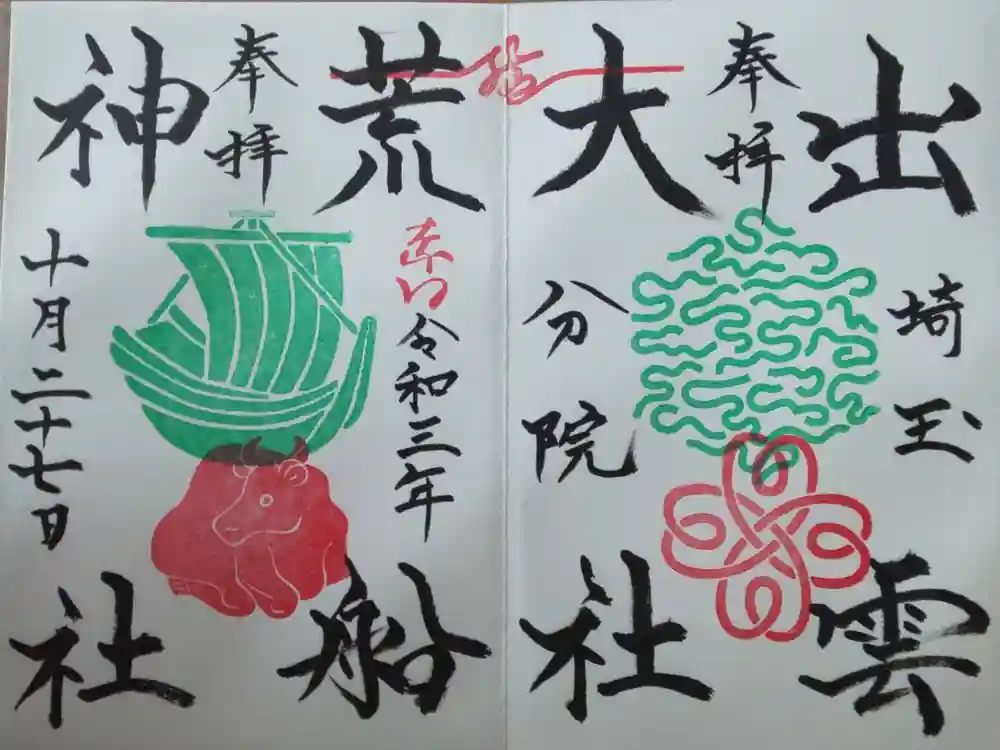 出雲
埼玉
奉拝
大社
分院
結
荒船
赤口
令和三年
奉拝
神社
十月二十七日